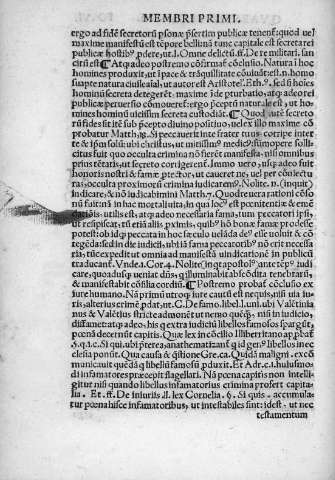 MEMBRI PRIMI.
ergo ad fidē secretorū psonæ psertim publicæ tenent: quod uel
maxime manifestū est tēpore bellinū tunc capitale est secretarei
publicæ hostib⁹ prodere, ut l. Omne delictū. ff. De re militari. san
citū est ¶ Atq adeo postremo cōfirmat cōclusio. Natura i hoc
homines produxit, ut i pace & trāquillitate cōuiuāt: est.n. homo
suapte natura ciuile aīal, ut autor est Aristotel. Eth.9. sed si hoies
hominū secreta detegerēt maxime ide pturbatio, atq adeo rei
publicæ puersio cōmoueret: ergo pceptū naturale est, ut ho-
mines hominū uicissim secreta custodiāt. ¶ Quod autē secreto
rū fides sit itē sub pcepto diuino positio, uel ex illo maxime cō
probatur Matth.18. Si peccauerit inte frater tuus: corripe inter
te & ipm solū: ubi christus, ut mitissim⁹ medic⁹, sūmopere solli-
citus fuit quo occulta crimina nō fierent manifesta, nisi omnibus
prius tētatis, ut secreto corrigerent. Immo uero, usq adeo fuit
honoris nostri & famæ ptector, ut caueret ne, uel per coniectu-
ras, occulta proximorū crimina iudicarem⁹. Nolite.n. (inquit)
iudicare, & nō iudicabimini Matth.7. Quod reuera rationi cōso
nū fuit: nā in hac mortali uita, in qua loc⁹ est pœnitētiæ & emē
dationis: utilis est, atq adeo necessaria fama, tum peccatori ipsi,
ut respiscat, tū etiā aliis pximis, quib⁹ hō bonæ famæ prodesse
potest: ob id q peccata in hoc sæculo uelāda de⁹ esse uoluit & cō
tegēda: sed in die iudicii, ubi iā fama peccatorib⁹ nō erit necessa-
ria, tūc expedit ut omnia ad manifestā uindicationē in publicū
traducant. Vnde.1. Cor.4. Nolite (inqt apostol⁹) ante tēp⁹ iudi
care, quoadusq ueniat dns, q illuminabit abscōdita tenebrarū,
& manifestabit cōsilia cordiū. ¶ Postremo probat cōclusio ex
iure humano. Nā primū utroq iure cautū est nequis, nisi uia iu-
ris, alterius crimē pdat, ut C. De famo. libel. l. uni. ubi Valētinia
nus & Valētius stricte admonēt ut nemo quēq, nisi in iudicio,
diffamet: atq adeo, his q extra iudiciū libellos famosos spargūt,
pœnā decernūt capitis. Quæ lex in cōcilio Illiberritano ap pbat
5. q.1. c. Si qui. ubi pterea, anathematizant q id gen⁹ libellos in ec
clesia ponūt. Qua causa & qstione Gre. ca. Quidā maligni. excō
municauit quēdā q libellū famosū pduxit. Et Adr. c.1. huiusmo-
di infamatores præcepit flagellari. Nā pœna capitis non intelli-
gitur nisi quando libellus infamatorius crimina profert capita-
lia. Et. ff. De iniuriis. l. lex Cornelia. §. Si quis. accumula-
tur pœna hisce infamatoribus, ut intestabiles sint: idest, ut nec
testamentum